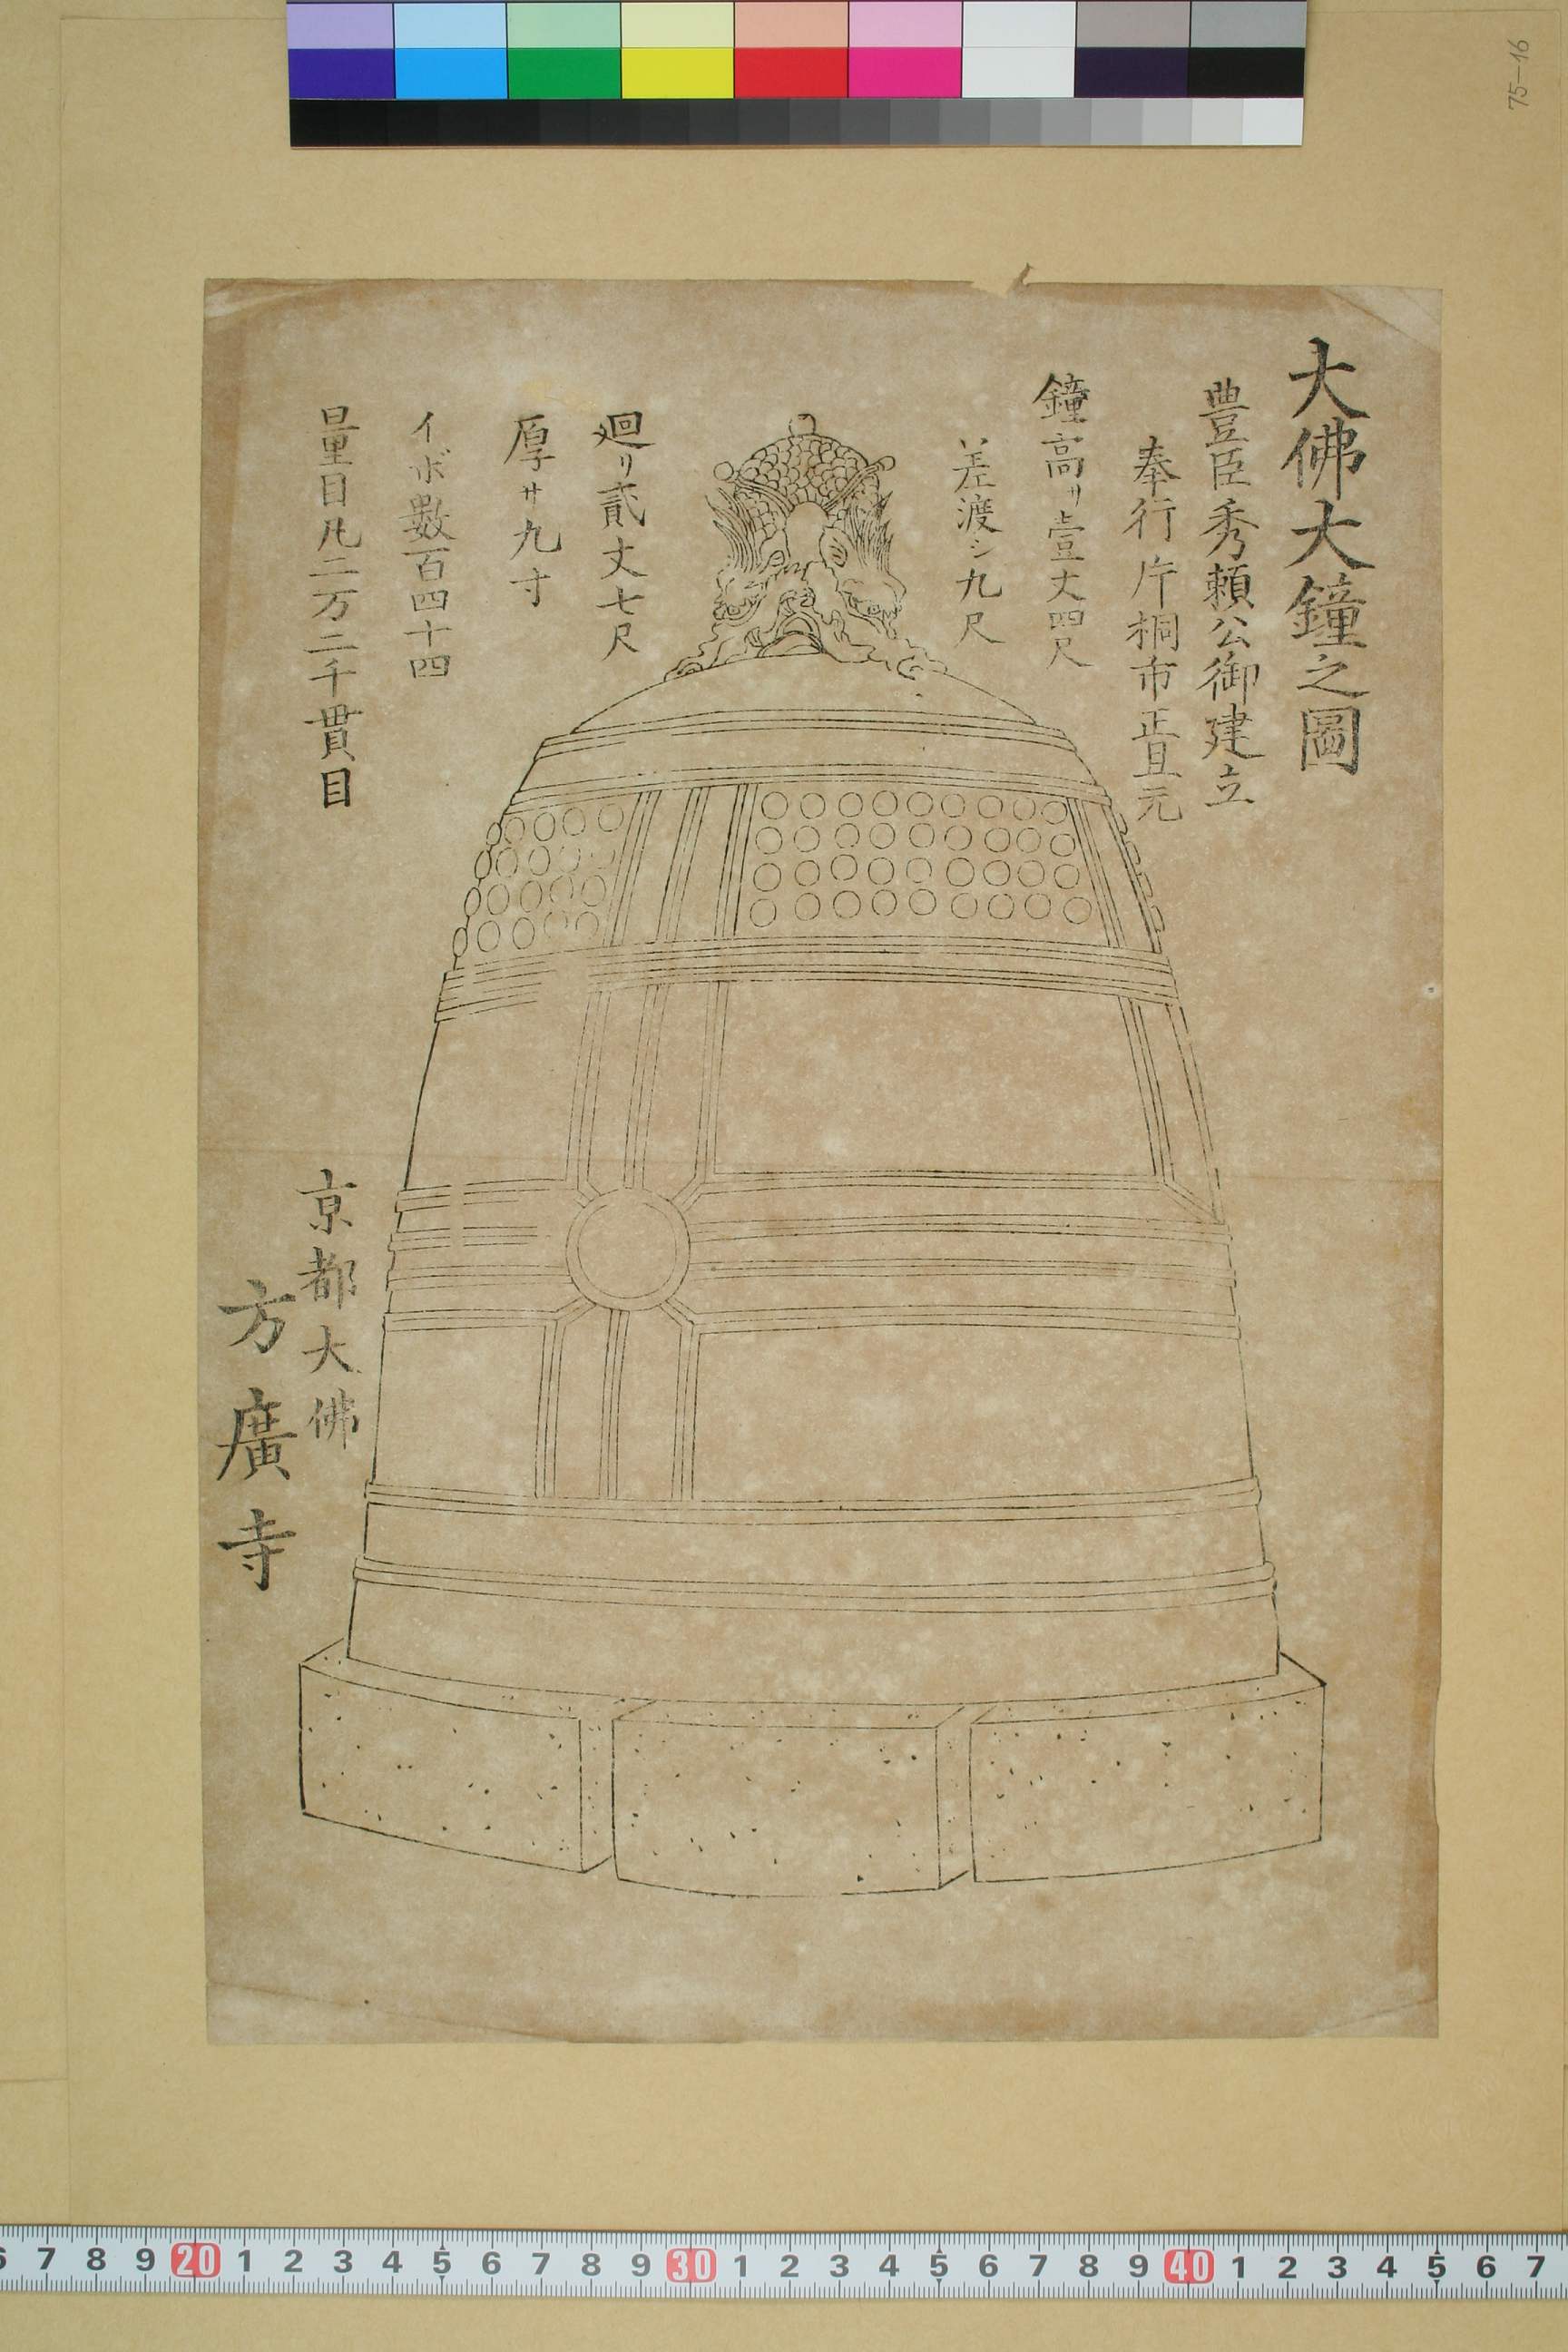 大佛大鐘之圖
豊臣秀頼公御建立
奉行片桐市正且元
鐘高サ壹丈四尺
差渡シ九尺
廻リ貳丈七尺
厚サ九寸
イボ数百四十四
量目凡二万二千貫目
京都大佛
方廣寺
75-16
6 7 8 9 20 1 2 3 4 5 6 7 8 9 30 1 2 3 4 5 6 7 8 9 40 1 2 3 4 5 6 7